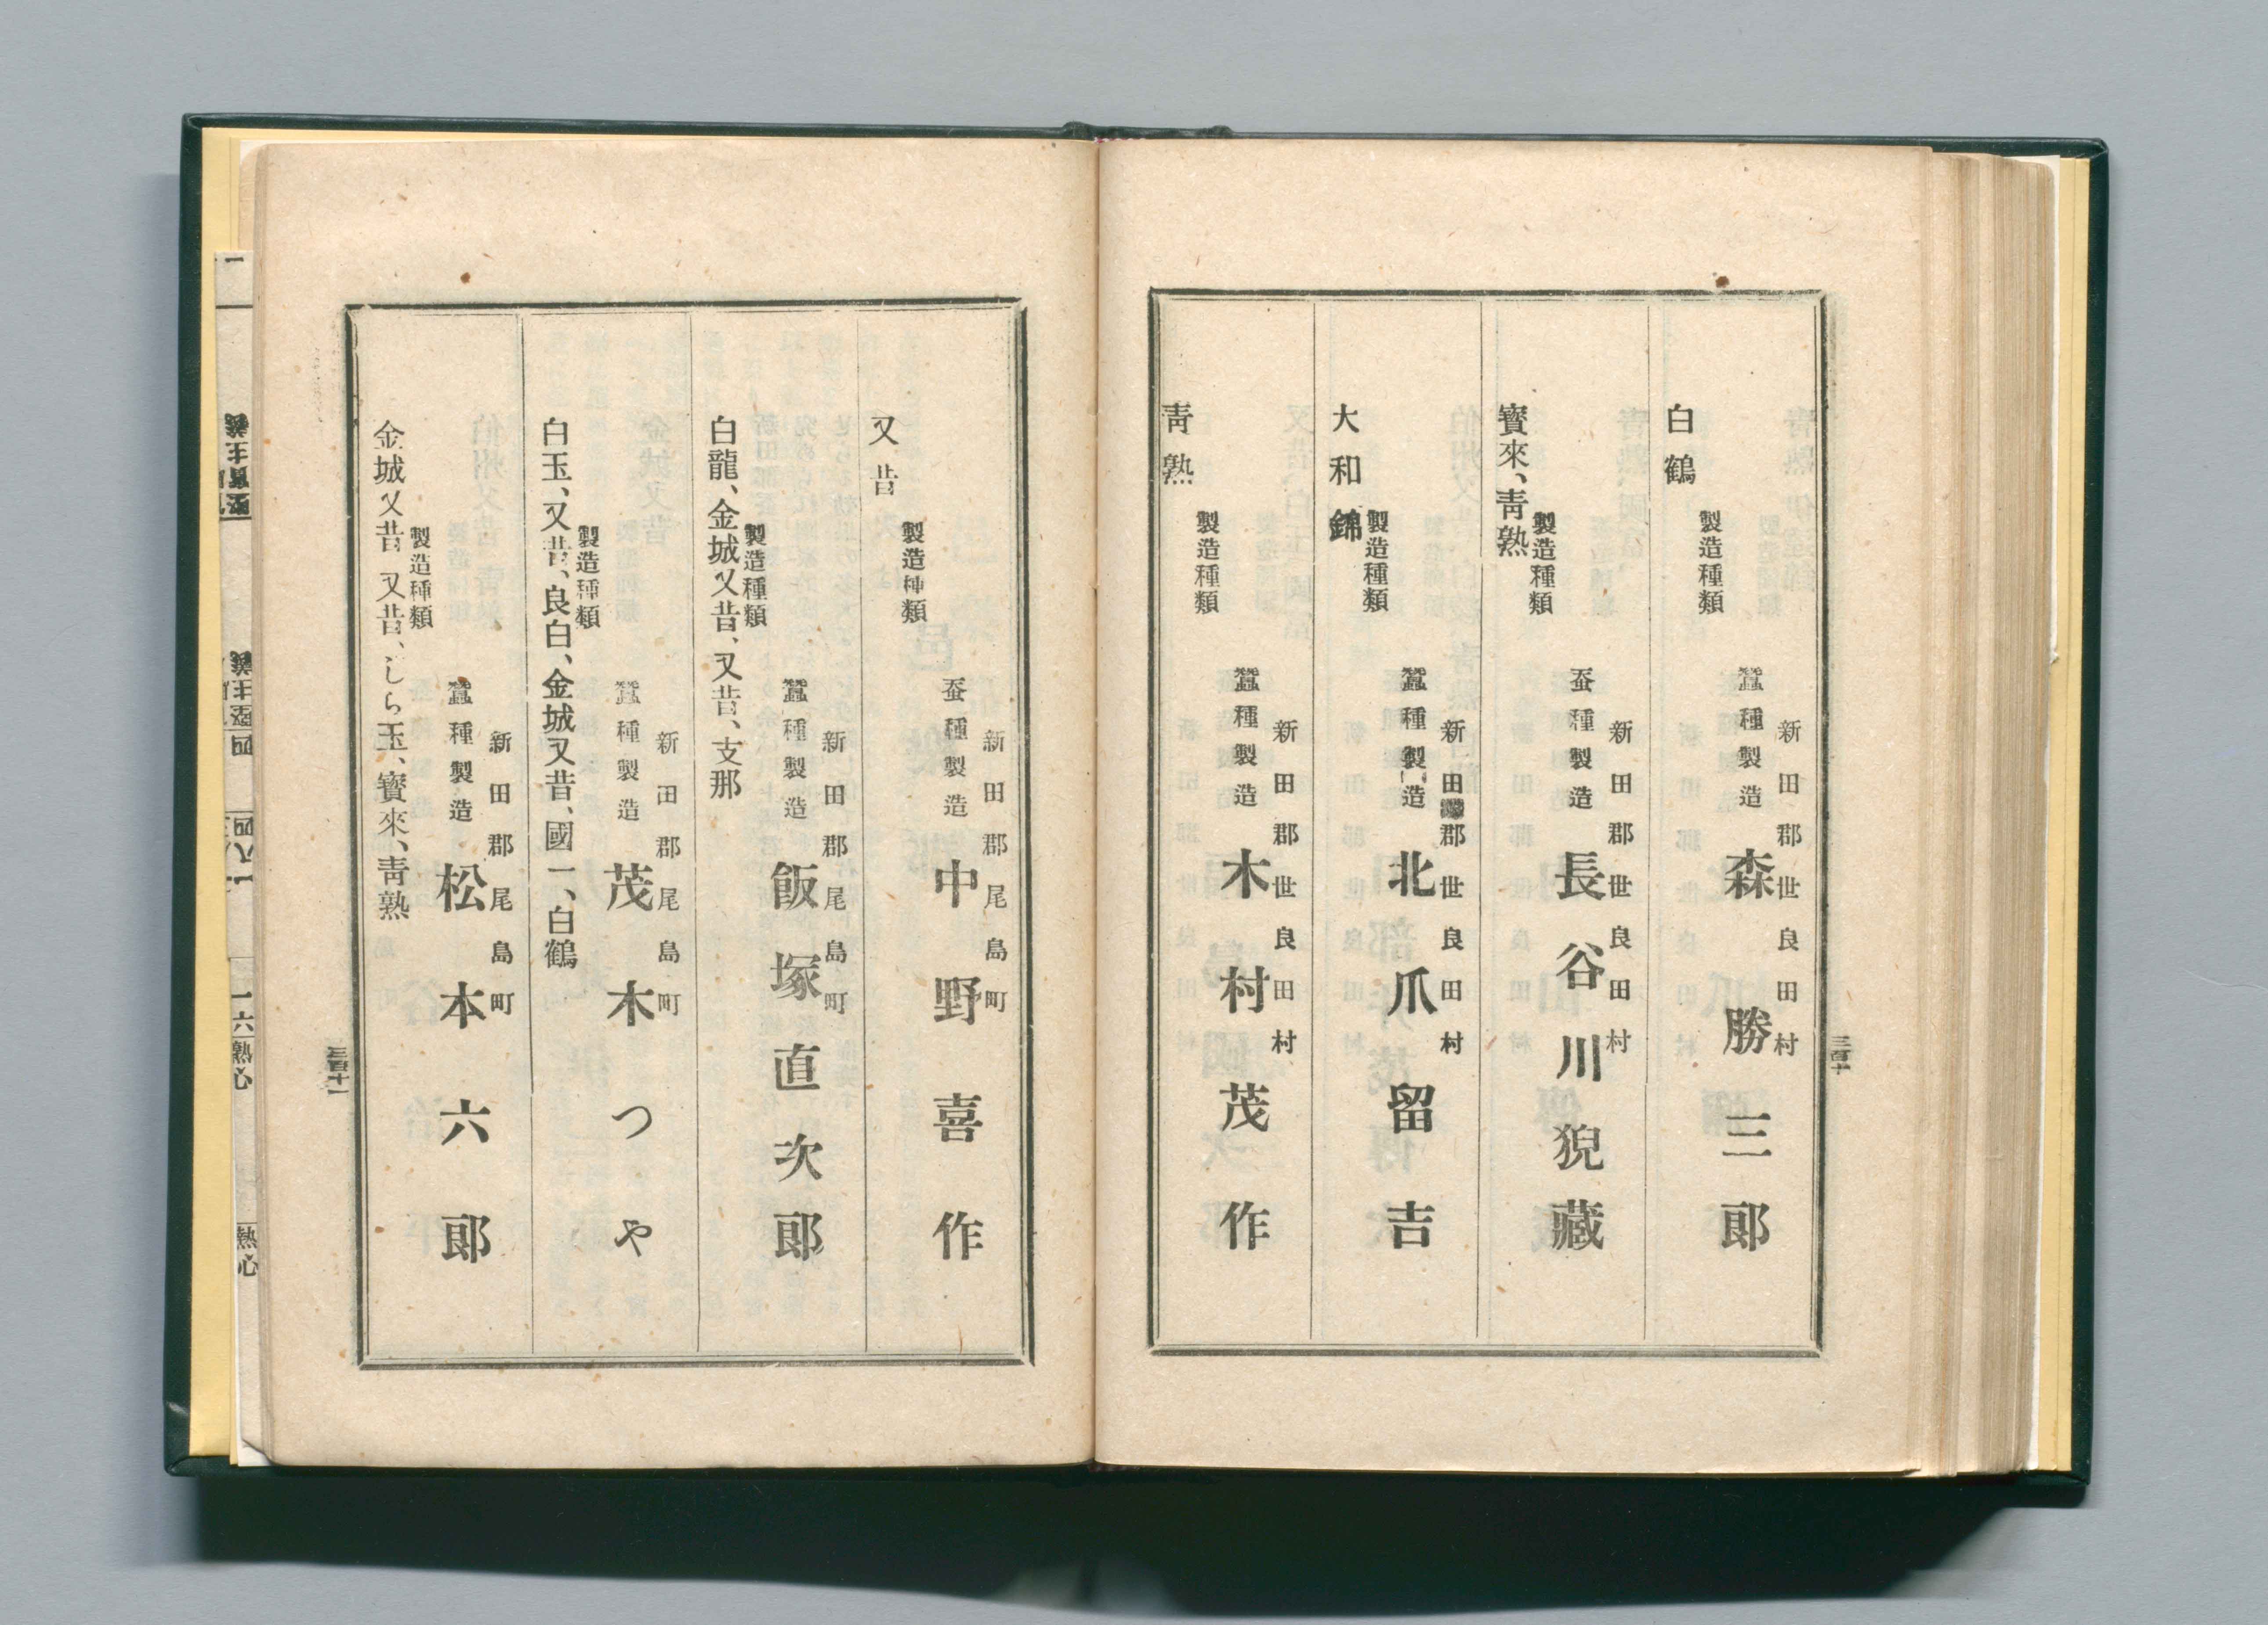 新田郡世良田村
蠶種製造 森勝三郎
製造種類
白鶴
新田郡世良田村
蚕種製造 長谷川猊藏
製造種類
寳來、靑熟
新田郡世良田村
蠶種製造 北爪留吉
製造種類
大和錦
新田郡世良田村
蠶種製造 木村茂作
製造種類
靑熟
三百十
新田郡尾島町
蚕種製造 中野喜作
製造種類
又昔
新田郡尾島町
蠶種製造 飯塚直次郎
製造種類
白龍、金城又昔、又昔、支那
新田郡尾島町
蠶種製造 茂木つや
製造種類
白玉、又昔、良白、金城又昔、國一、白鶴
新田郡尾島町
蠶種製造 松本六郎
製造種類
金城又昔 又昔、しら玉、寳來、靑熟
三百十一
一六
熱心
熱心